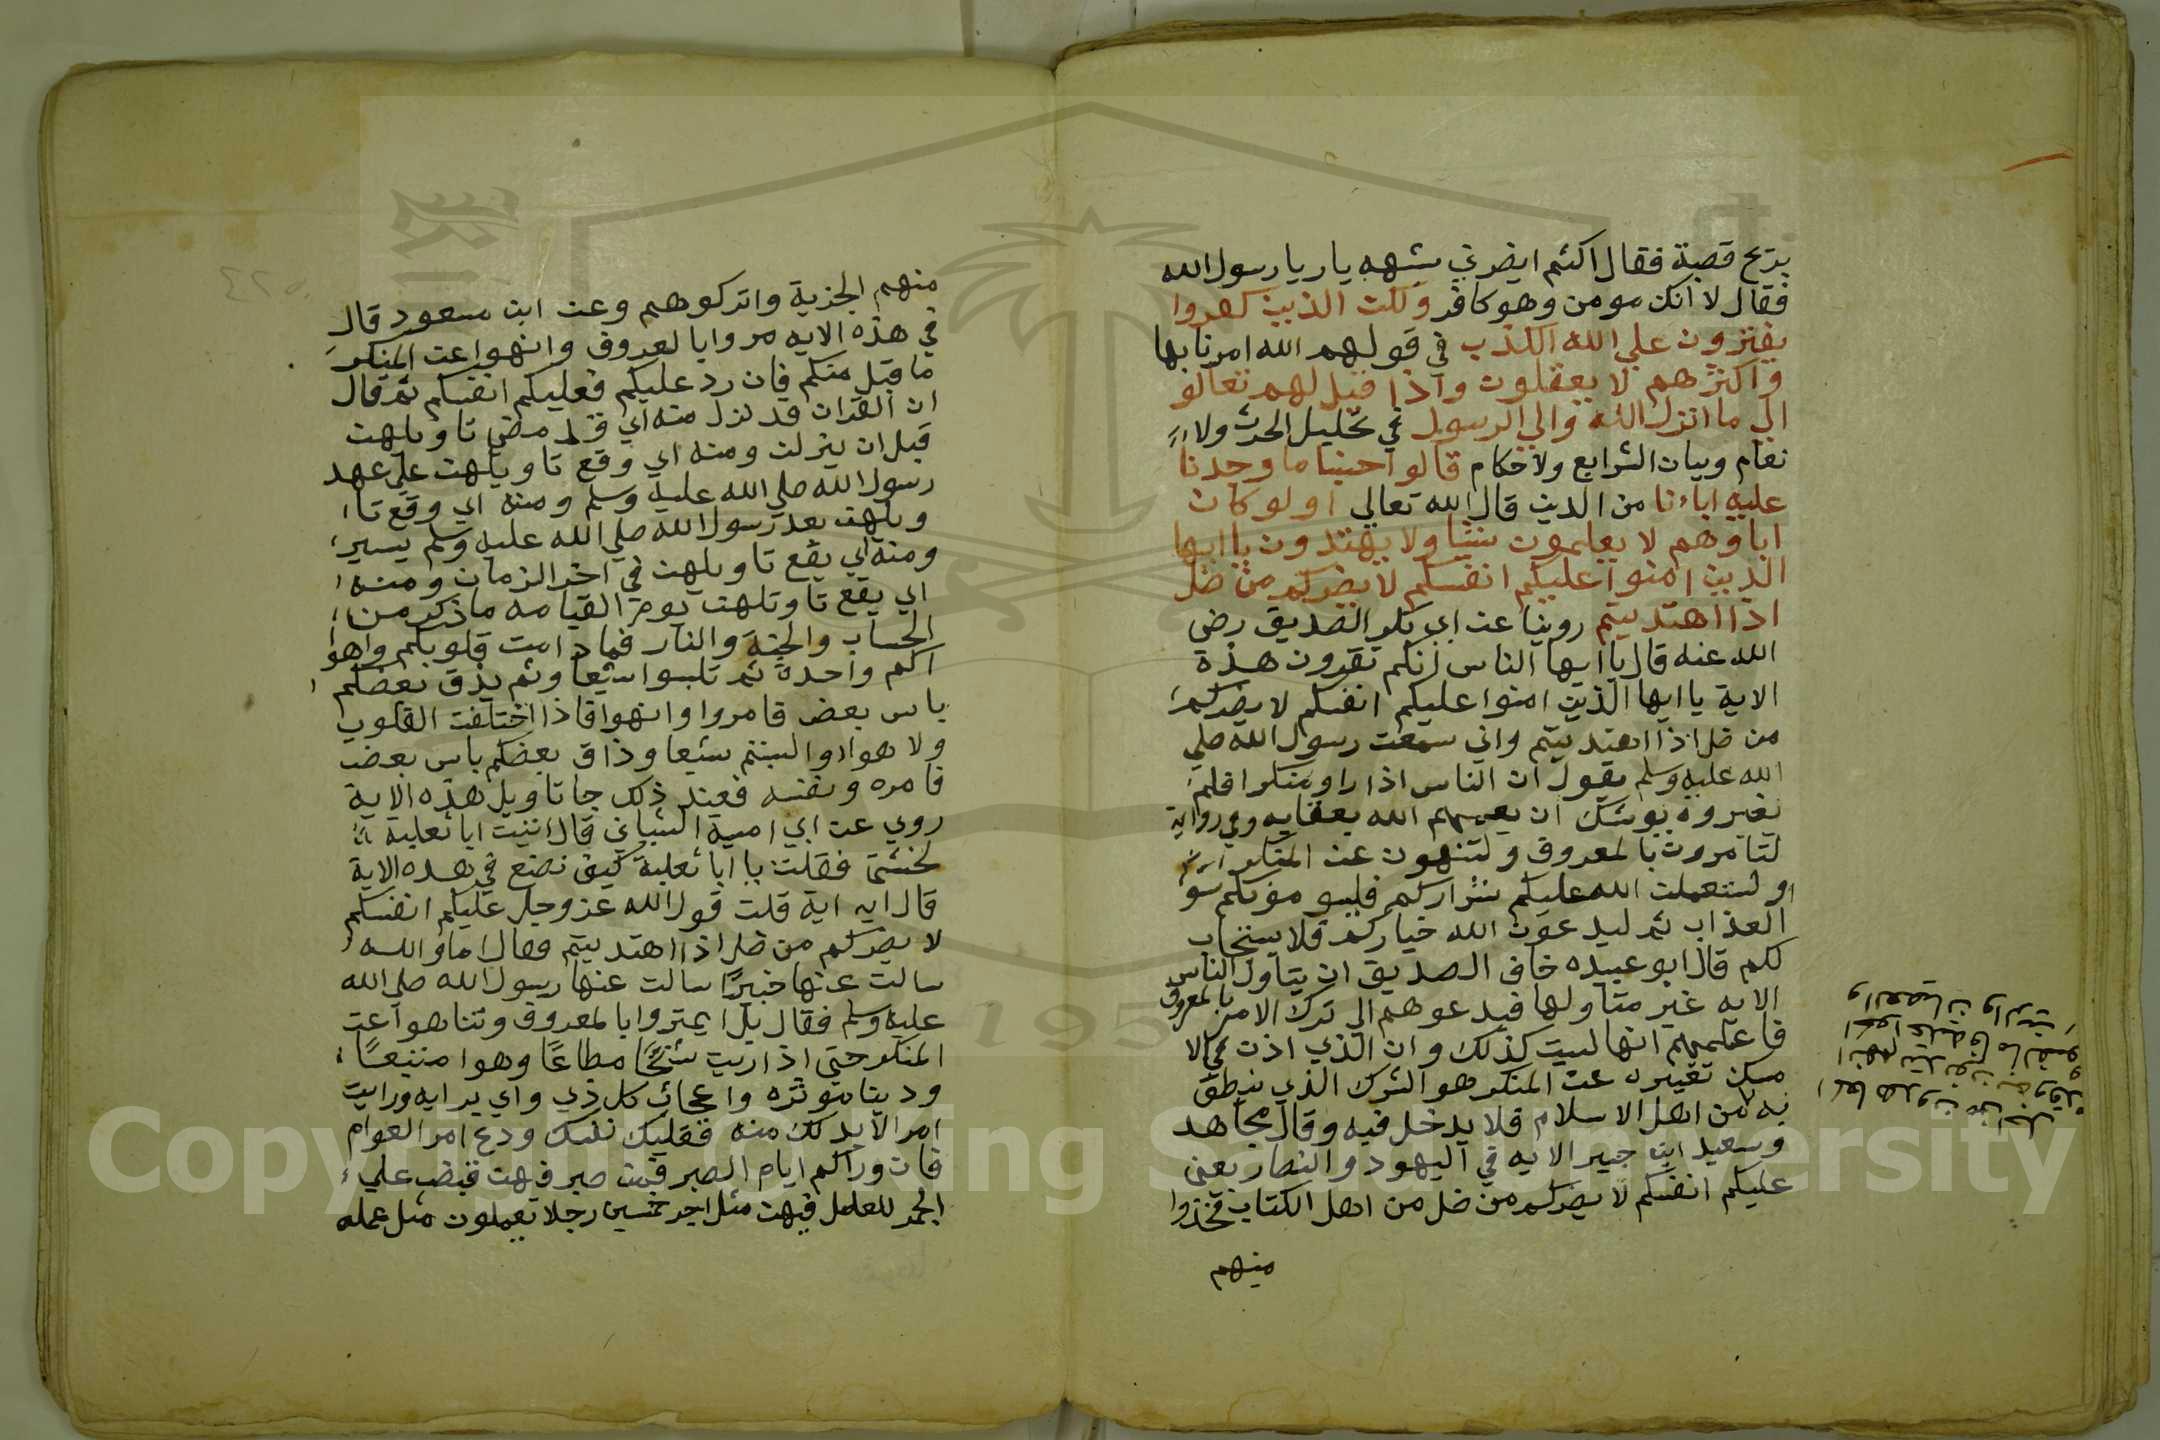 بريح قصبة فقال اكثم ايضرني شبهه يا ر يا رسول الله
فقال لا انك مومن وهو كافر ولكن الذين كفروا
يفترون علي الله الكذب في قولهم الله امرنا بها
واكثرهم لا يعقلون واذا قيل لهم تعالو
الي ما انزل الله والي الرسول في تحليل الحرث ولا
نعام وبيان الشرايع ولاحكام قالو احبنا ما وجدنا
عليه اباءنا من الدين قال الله تعالي اولو كان
اباوهم لا يعلمون شيئا ولا يهتدون يا ايها
الذين امنوا عليكم انفسكم لا يضركم من ضل
اذا اهتديتم روينا عن ابي بكر الصديق رضي
الله عنه قال يا ايها الناس انكم تقرون هذة
الاية يا ايها الذين امنوا عليكم انفسكم لا يضركم
من ضل اذا اهتديتم واني سمعت رسول الله صلي
الله عليه وسلم يقول ان الناس اذا راو منكرا فلم
يغيروه يوشك ان يعمهم الله بعقابه وفي رواية
لتامرون بالمعروف ولتنهون عن المنكر
او ليستعملن الله عليكم شراركم فليسومونكم سو
العذاب ثم ليدعون الله خياركم فلا يستجاب
لكم قال ابو عبيده خاف الصديق ان يتاول الناس
الايه غير متاولها فيدعوهم الي ترك الامر بالمعروف
فاعلمهم انها ليست كذلك وان الذي اذن
تغييره عن المنكر هو الشرك الذي ينطق
به من اهل الاسلام فلا يدخل فيه وقال مجاهد
وسعيد ابن جبير الايه في اليهود والنصار يعني
عليكم انفسكم لا يضركم من ضل من اهل الكتاب فخذوا
منهم
منهم الجزية واتركوهم وعن ابن مسعود قال
في هذه الايه مروا بالمعروف وانهوا عن المنكر
ما قبل منكم فان رد عليكم فعليكم انفسكم ثم قال
ان القران قد نزل منه اي قد مضي تاويلهن
قبل ان ينزلن ومنه اي وقع تاويلهن علي عهد
رسول الله صلي الله عليه وسلم ومنه اي وقع تا
ويلهن بعد رسول الله صلي الله عليه وسلم يسير
ومنه اي يقع تاويلهن في اخر الزمان ومنه
اي يقع تاوتلهن يوم القيامه ما ذكر من
الحساب والجنة والنار فما دامت قلوبكم واهوا
اكم واحدة ثم تلبسوا شيعا وثم يذق بعضكم
باس بعض فامروا وانهوا فاذا اختلفت القلوب
ولا هوا والبستم شيعا وذاق بعضكم باس بعض
فامره ونفسه فعند ذلك جا تاويل هذه الاية
روي عن ابي امية الشباني قال اتيت ابا ثعلبة
لخشني فقلت يا ابا ثعلبة كيف نصنع في هذه الاية
قال ايه اية قلت قول الله عز وجل عليكم انفسكم
لا يضركم من ضل اذا اهتديتم فقال اما والله
سالت عنها خبيرا سالت عنها رسول الله صلي الله
عليه وسلم فقال بل ايمتروا بالمعروف وتناهوا عن
المنكر حتي اذا ريت شحا مطاعا وهوا متبعا
ودينا موثره واعجاب كل ذي واي برايه ورايت
امر الابد لك منه فعليك نفسك ودع امر العوام
فان وراكم ايام الصبر فمن صبر فيهن قبض علي
الجمر للعامل فيهن مثل اجر خمسين رجلا يعملون مثل عمله
Copyright © King Saud University
195